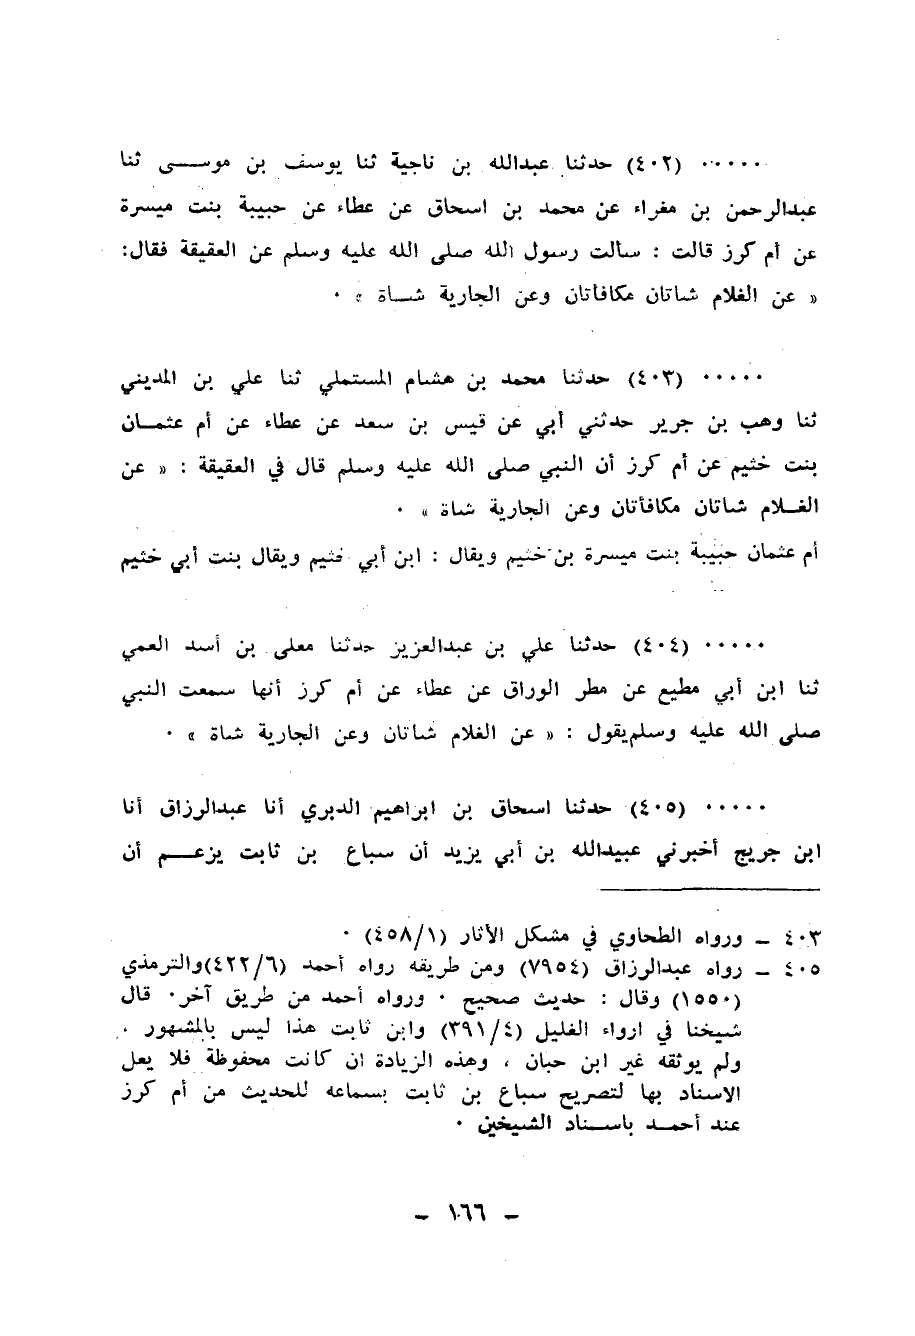 ٠٠٠٠٠ (٤٠٢) حدثنا عبدالله بن ناجية ثنا يوسف بن موسى ثنا
عبدالرحمن بن مفراء عن محمد بن اسحاق عن عطاء عن حبيبة بنت ميسرة
عن أم كرز قالت : سألت رسول الله صلى الله عليه وسلم عن العقيقة فقال:
« عن الغلام شاتان مكافأتان وعن الجارية شاة » ٠
٠٠٠٠٠ (٤٠٣) حدثنا محمد بن هشام المستملي ثنا علي بن المديني
ثنا وهب بن جرير حدثني أبي عن قيس بن سعد عن عطاء عن أم عثمان
بنت خثيم عن أم كرز أن النبي صلى الله عليه وسلم قال في العقيقة : « عن
الغلام شاتان مكافأتان وعن الجارية شاة » ٠
أم عثمان حبيبة بنت ميسرة بن خثيم ويقال : ابن أبي خثيم ويقال بنت أبي خثيم
٠٠٠٠٠ (٤٠٤) حدثنا علي بن عبدالعزيز حدثنا معلى بن أسد العمي
ثنا ابن أبي مطيع عن مطر الوراق عن عطاء عن أم كرز أنها سمعت النبي
صلى الله عليه وسلم يقول : « عن الغلام شاتان وعن الجارية شاة » ٠
٠٠٠٠٠ (٤٠٥) حدثنا اسحاق بن ابراهيم الدبري أنا عبدالرزاق أنا
ابن جريج أخبرني عبيدالله بن أبي يزيد أن سباع بن ثابت يزعم أن
٤٠٣ ــ ورواه الطحاوي في مشكل الأثار (٤٥٨/١) ٠
٤٠٥ ــ رواه عبدالرزاق (٧٩٥٤) ومن طريقه رواه أحمد (٤٢٢/٦) والترمذي
(١٥٥٠) وقال : حديث صحيح ٠ ورواه أحمد من طريق آخر٠ قال
شيخنا في ارواء الغليل (٣٩١/٤) وابن ثابت هذا ليس بالمشهور ،
ولم يوثقه غير ابن حبان ، وهذه الزيادة ان كانت محفوظة فلا يعل
الاسناد بها لتصريح سباع بن ثابت بسماعه للحديث من أم كرز
عند أحمد باسناد الشيخين ٠
ــ ١٦٦ ــ